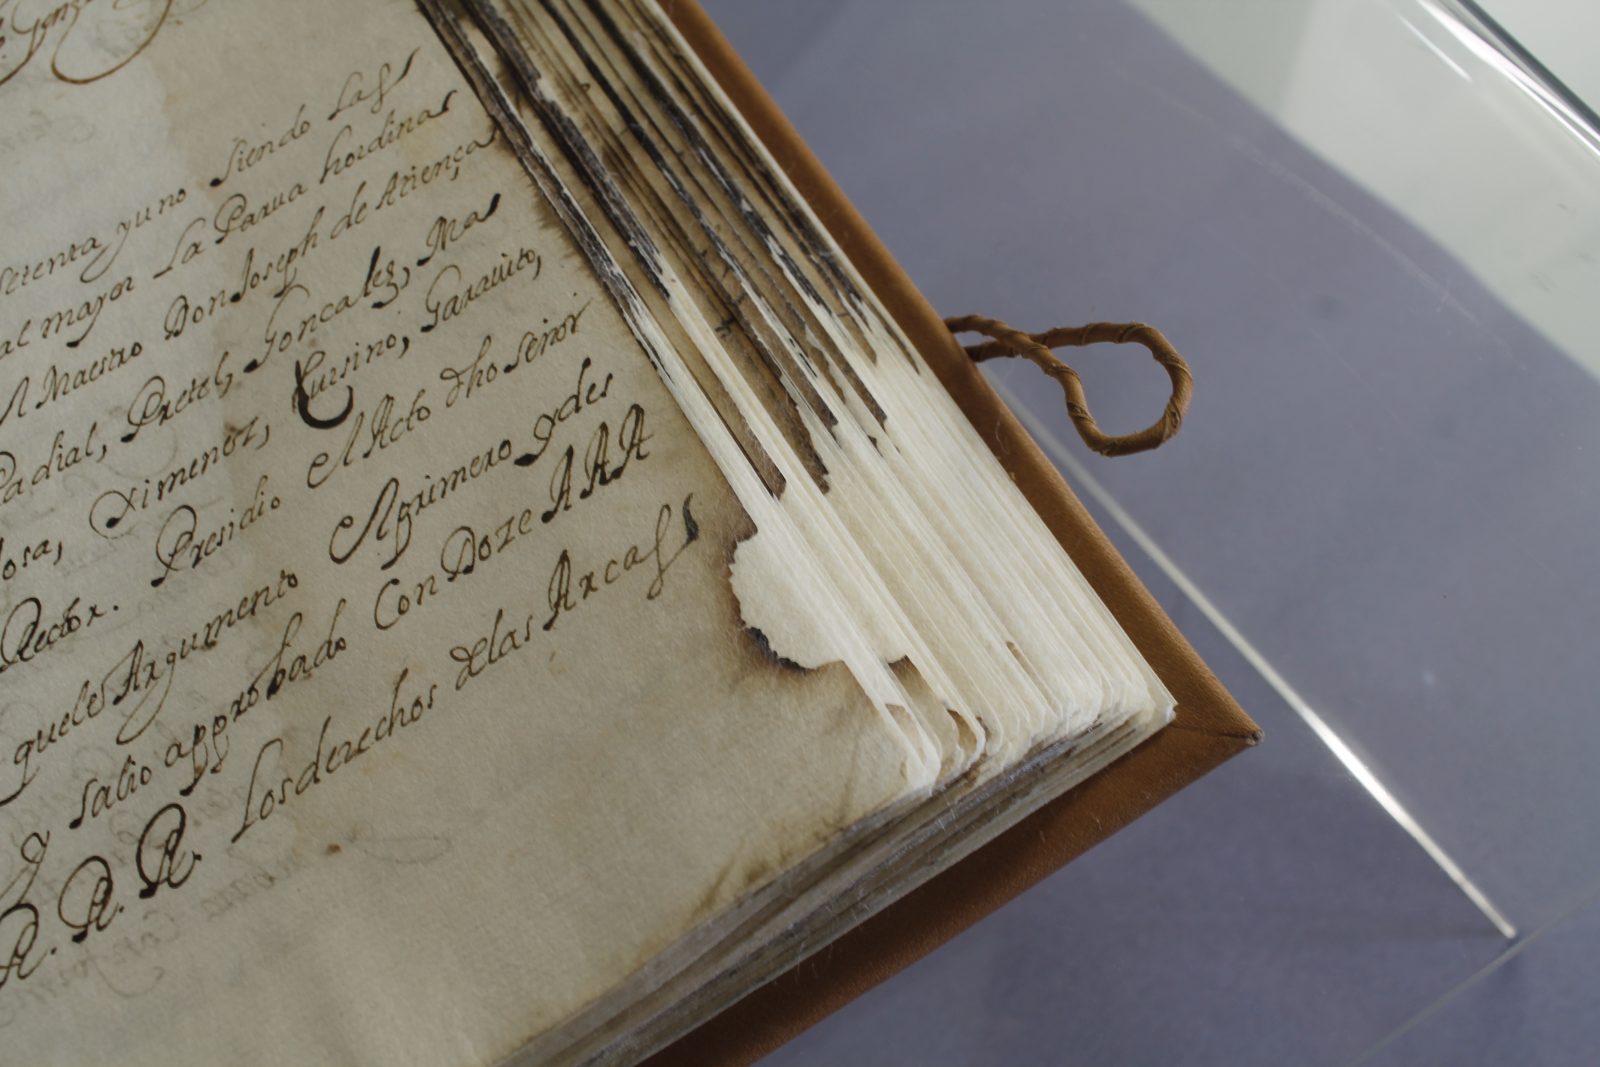 setenta yuno siendo Lass
al mayor La Parua hordinas
Maestro Don Joseph de Atiença
Padial, Pretel, Gonçalez, Mas
losa, Ximenez, Cursino, Garauito,
Rector. Presidio el Acto dho señor
quele Argumento el primero ydes
y salio approbado Con Doze AAA
R. R. R. los derechos delas Arcas